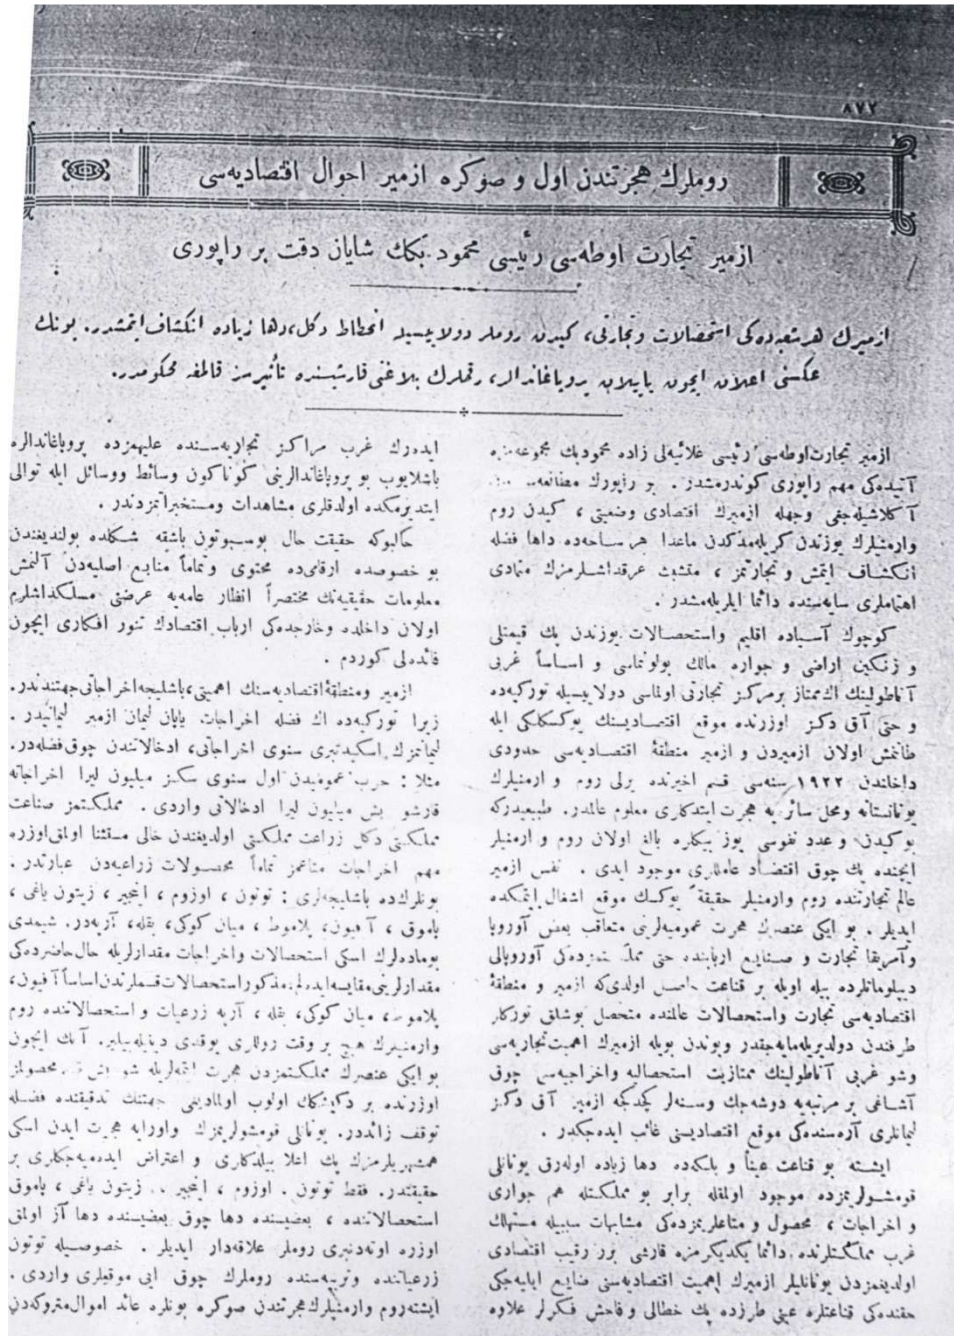 ٨٧٢
روملرك هجرتندن اول و صوكره ازمير احوال اقتصاديه‌سى
ازمير تجارت اوطه‌سى رئيسى محمود بكك شايان دقت بر راپورى
ازميرك هر شعبه‌ده‌كى استحصالات وتجارتى، كيدن روملر دولاييسيله انحطاط دكل، دها زياده انكشاف ايتمشدر. بونك
عكسنى اعلان ايچون ياپيلان پروپاغاندالر، رقملرك بلاغتى قارشيسنده تأثيرسز قالمغه محكومدر.
ازمير تجارت اوطه‌سى رئيسى علائيه‌لى زاده محمود بك مجموعه‌مزه
آتيده‌كى مهم راپورى كوندرمشدر. بو راپورك مطالعه‌سندن
آكلاشيله‌جغى وجهله ازميرك اقتصادى وضعيتى، كيدن روم
وارمنيلرك يوزندن كريله‌مدكدن ماعدا هر ساحه‌ده داها فضله
انكشاف ايتمش و تجارتمز، متشبث عرقداشلرمزك متمادى
اهتماملرى سايه‌سنده دائما ايلريله‌مشدر.
كوچوك آسياده اقليم واستحصالات يوزندن پك قيمتلى
و زنكين اراضى و جواره مالك بولونماسى و اساساً غربى
آناطولينك اك ممتاز بر مركز تجارتى اولماسى دولاييسيله توركيه‌ده
و حتى آق دكز اوزرنده موقع اقتصاديسنك يوكسكلكى ايله
طانمش اولان ازميردن و ازمير منطقهٔ اقتصاديه‌سى حدودى
داخلندن ١٩٢٢ سنه‌سى قسم اخيرنده يرلى روم و ارمنيلرك
يونانستانه ومحل سائره يه هجرت ايتدكلرى معلوم عالمدر. طبيعيدركه
بو كيدن و عدد نفوسى يوز بيكلره بالغ اولان روم و ارمنيلر
ايچنده پك چوق اقتصاد عاملارى موجود ايدى. نفس ازمير
عالم تجارتنده روم وارمنيلر حقيقةً يوكسك موقع اشغال ايتمكده
ايديلر. بو ايكى عنصرك هجرت عموميه‌لرينى متعاقب بعض آوروپا
وآمريقا تجارت و صنايع اربابنده حتى مملكتمزده‌كى آوروپالى
ديپلوماتلرده بيله اويله بر قناعت حاصل اولدى‌كه ازمير و منطقهٔ
اقتصاديه‌سى تجارت واستحصالات عالمنده متحصل بوشلق توركلر
طرفندن دولديريله‌مايه‌جقدر وبوندن بويله ازميرك اهميت تجاريه‌سى
وشو غربى آناطولينك ممتازيت استحصاليه واخراجيه‌سى چوق
آشاغى بر مرتبه‌يه دوشه‌جك وسنه‌لر كچدكجه ازمير آق دكز
ليمانلرى آره‌سنده‌كى موقع اقتصاديسنى غائب ايده‌جكدر.
ايشته بو قناعت عيناً و بلكه‌ده دها زياده اوله‌رق يونانلى
قومشولريمزده موجود اولمقله برابر بو مملكتله هم جوارى
و اخراجات، محصول و متاعلريمزده‌كى مشابهات سببيله مستهلك
غرب مملكتلرنده دائما يكديكرمزه قارشى برر رقيب اقتصادى
اولديغمزدن يونانليلر ازميرك اهميت اقتصاديه‌سنى ضايع ايليه‌جكى
حقنده‌كى قناعتلره عينى طرزده پك خطالى وفاحش فكرلر علاوه
ايده‌رك غرب مراكز تجاريه‌سنده عليهمزده پروپاغاندالره
باشلايوب بو پروپاغاندالرينى كوناكون وسائط ووسائل ايله توالى
ايتديرمكده اولدقلرى مشاهدات ومستخبراتمزدندر.
حالبوكه حقيقت حال بوسبوتون باشقه شكلده بولنديغندن
بو خصوصده ارقامى‌ده محتوى وتماماً منابع اصليه‌دن آلنمش
معلومات حقيقيه‌نك مختصراً انظار عامه‌يه عرضنى مسلكداشلرم
اولان داخلده وخارجده‌كى ارباب اقتصادك تنور افكارى ايچون
فائده‌لى كوردم.
ازمير ومنطقهٔ اقتصاديه‌سنك اهميتى، باشليجه اخراجاتى جهتندندر.
زيرا توركيه‌ده اك فضله اخراجات ياپان ليمان ازمير ليمانيدر.
ليمانمزك اسكيدنبرى سنوى اخراجاتى، ادخالاتندن چوق فضله‌در.
مثلا: حرب عموميدن اول سنوى سكز ميليون ليرا اخراجاته
قارشو بش ميليون ليرا ادخالاتى واردى. مملكتمز صناعت
مملكتى دكل زراعت مملكتى اولديغندن خالى مستثنا اولمق اوزره
مهم اخراجات متاعمز تماماً محصولات زراعيه‌دن عبارتدر.
بونلرك‌ده باشليجه‌لرى: توتون، اوزوم، انجير، زيتون ياغى،
پاموق، آفيون، پلاموط، ميان كوكى، بقله، آرپه‌در. شيمدى
بوماده‌لرك اسكى استحصالات واخراجات مقدارلريله حال حاضرده‌كى
مقدارلرينى مقايسه ايده‌لم: مذكور استحصالات قسملرندن اساساً آفيون،
پلاموط، ميان كوكى، بقله، آرپه زرعيات و استحصالاتنده روم
وارمنيلرك هيچ بر وقت روللرى يوقدى دينيله‌بيلير. آنك ايچون
بو ايكى عنصرك مملكتمزدن هجرت ايتمه‌لريله شو بش قسم محصولمز
اوزرنده بر دكيشكلك اولوب اولماديغى جهتنك تدقيقنده فضله
توقف زائددر. يونانلى قومشولريمزك واورايه هجرت ايدن اسكى
همشهريلرمزك پك اعلا بيلدكلرى و اعتراض ايده‌ميه‌جكلرى بر
حقيقتدر. فقط توتون، اوزوم، انجير، زيتون ياغى، پاموق
استحصالاتنده، بعضيسنده دها چوق بعضيسنده دها آز اولمق
اوزره اوته‌دنبرى روملر علاقه‌دار ايديلر. خصوصيله توتون
زرعياتنده وتربيه‌سنده روملرك چوق ايى موقيلرى واردى.
ايشته روم وارمنيلرك هجرتندن صوكره بونلره عائد اموال متروكه‌دن